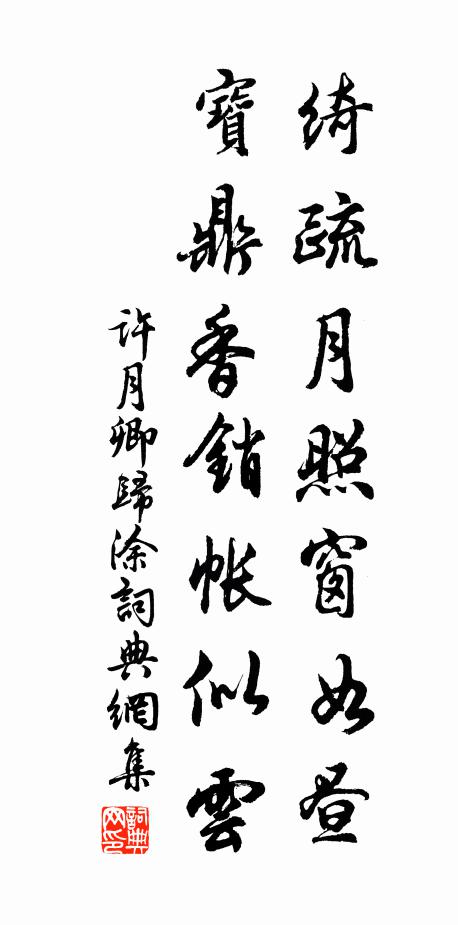 綺疏月照窗如昼
寶鼎香銷帳似雲
許月卿歸涂詞典網集
詞典网印